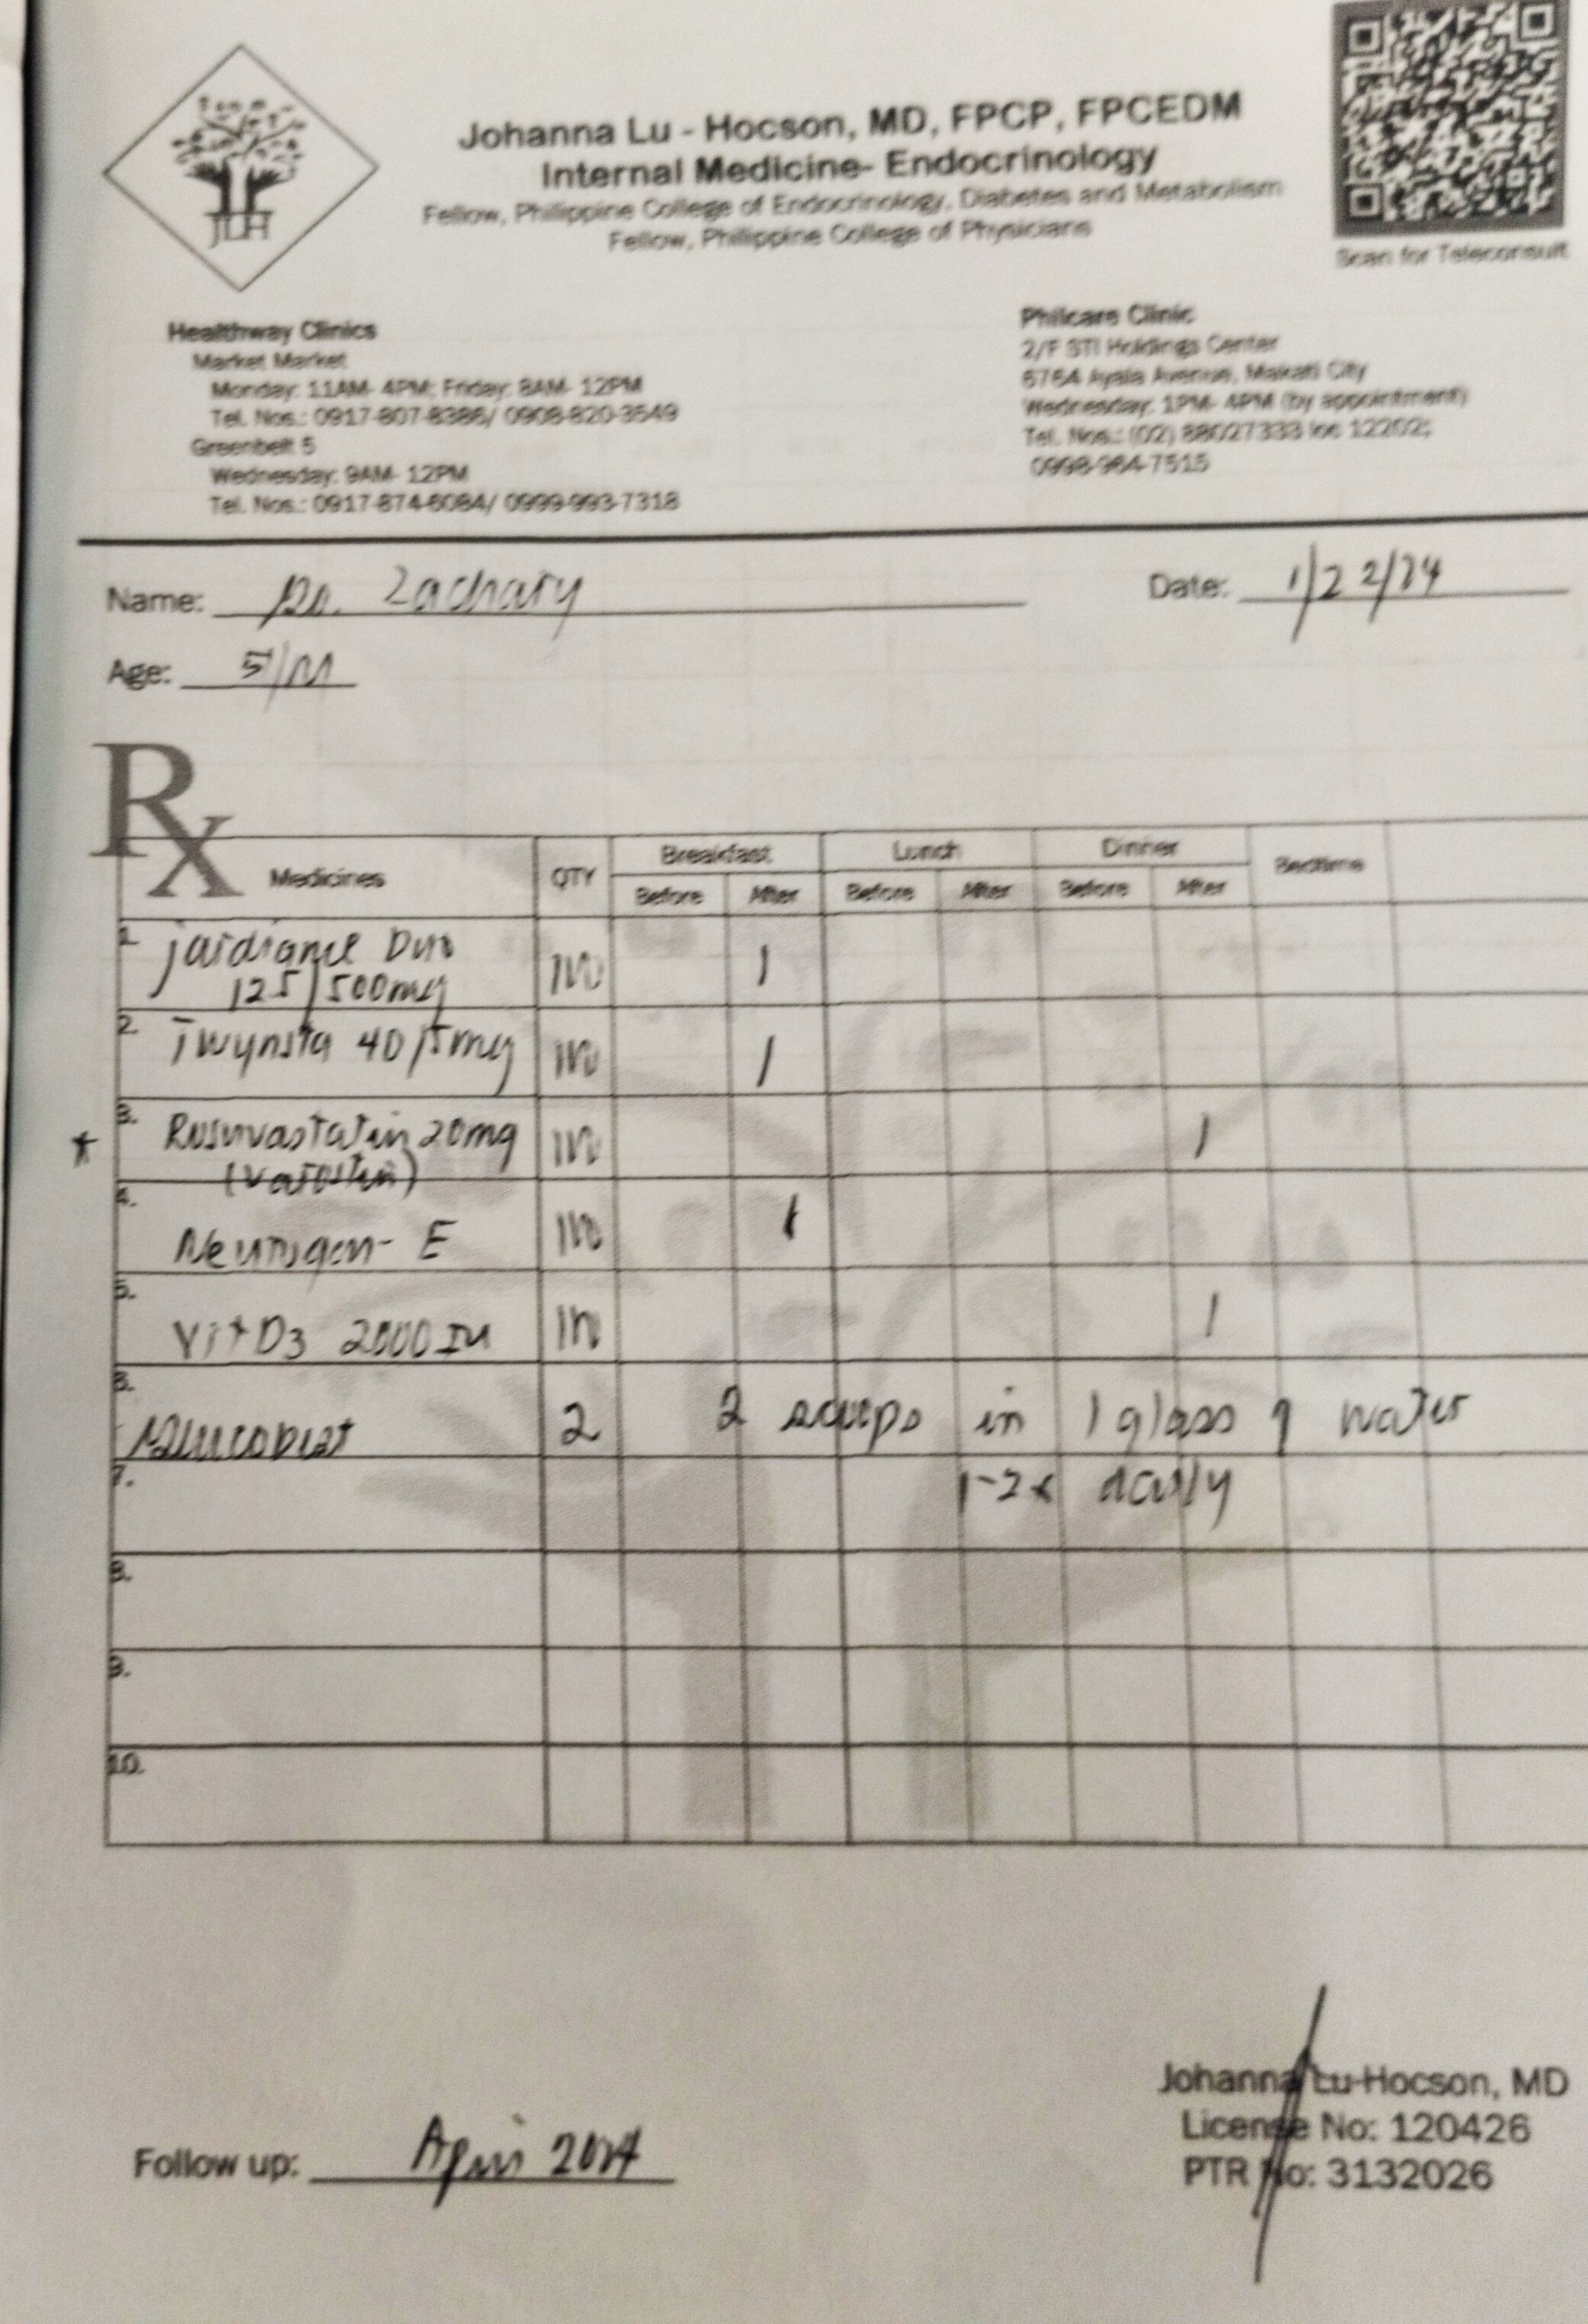 JLH
Johanna Lu - Hocson, MD, FPCP, FPCEDM
Internal Medicine- Endocrinology
Fellow, Philippine College of Endocrinology, Diabetes and Metabolism
Fellow, Philippine College of Physicians
Scan for Teleconsult
Healthway Clinics
Market Market
Monday: 11AM- 4PM; Friday: 8AM- 12PM
Tel. Nos.: 0917-807-8386/ 0908-820-3549
Greenbelt 5
Wednesday: 9AM- 12PM
Tel. Nos.: 0917-874-6084/ 0999-993-7318
Philcare Clinic
2/F STI Holdings Center
6764 Ayala Avenue, Makati City
Wednesday: 1PM- 4PM (by appointment)
Tel. Nos.: (02) 88027333 loc 12202;
0998-964-7515
Name: Zachary
Date: 1/22/24
Age: /M
Rx
Medicines QTY Breakfast Lunch Dinner Bedtime
Before After Before After Before After
1. Jardiance Duo 1
12.5/500mg
2. Twynsta 40/5mg 1
3. Rosuvastatin 20mg 1
4. Neurogen-E 1
5. Vit D3 2000 IU 1
6. Glucobest 2 2 scoops in 1 glass of water
7. 1-2x daily
8.
9.
10.
Follow up: April 2024
Johanna Lu-Hocson, MD
License No: 120426
PTR No: 3132026